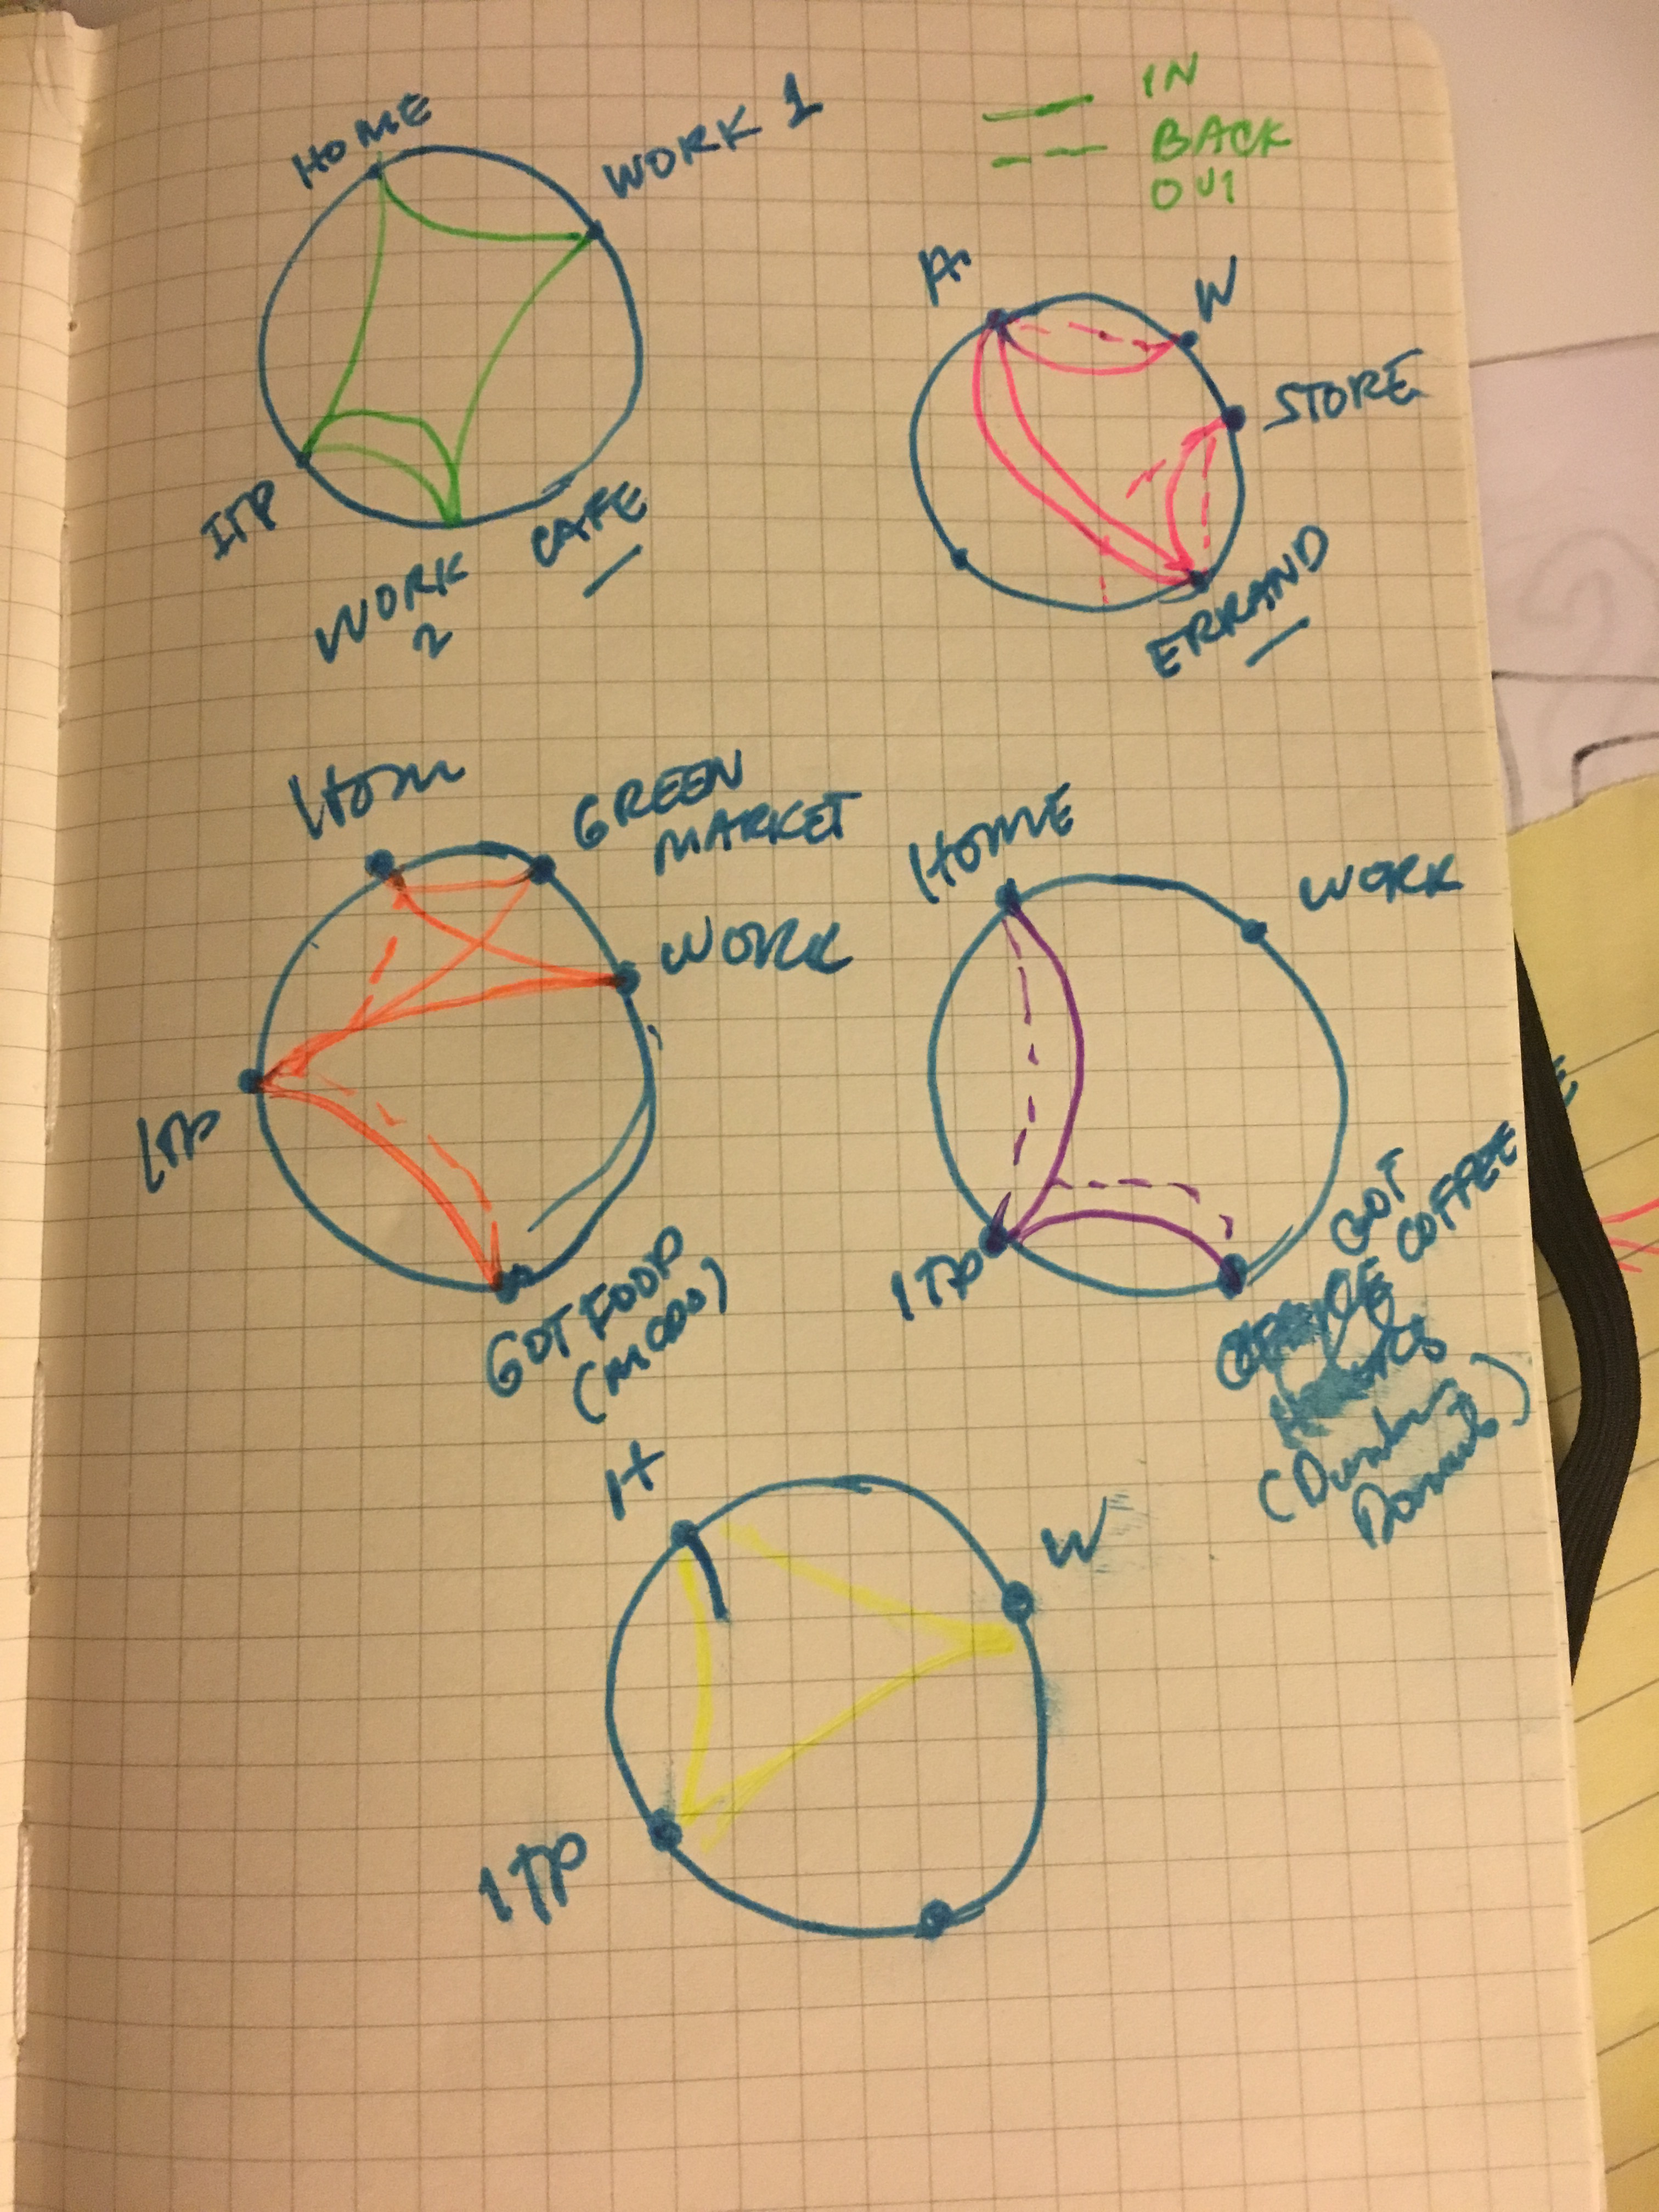 HOME
WORK 1
IN
BACK
OUT
ITP
WORK
2
CAFE
W
STORE
ERRAND
HOM
GREEN
MARKET
WORK
ITP
GOT FOOD
HOME
WORK
ITP
GOT
COFFEE
(Dunkin
Donuts)
H
W
ITP